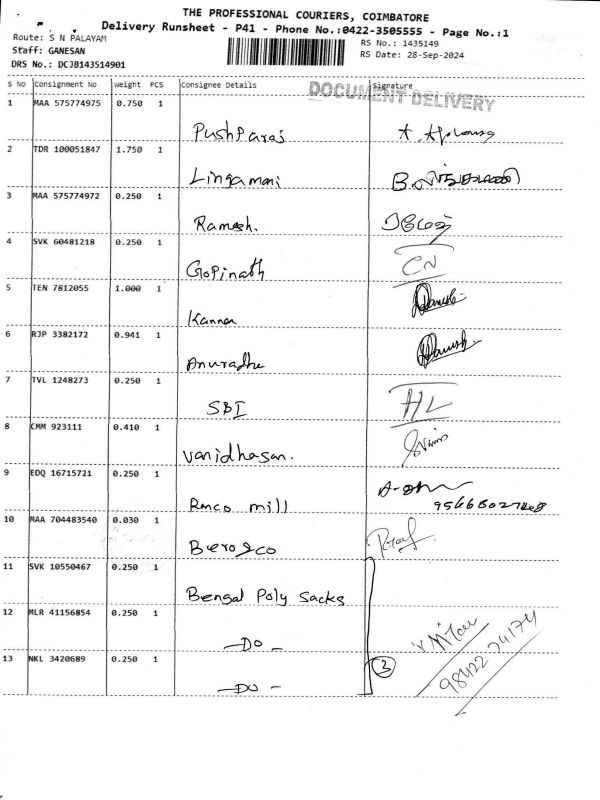 THE PROFESSIONAL COURIERS, COIMBATORE
Delivery Runsheet - P41 - Phone No.:0422-3505555 - Page No.:1
Route: S N PALAYAM
Staff: GANESAN
DRS No.: DCJB143514901
RS No.: 1435149
RS Date: 28-Sep-2024
S No Consignment No Weight PCS Consignee Details Signature
DOCUMENT DELIVERY
1 MAA 575774975 0.750 1
PushParaj
2 TDR 100051847 1.750 1
Lingamani
3 MAA 575774972 0.250 1
Ramesh.
4 SVK 60481218 0.250 1
Gopinath CN
5 TEN 7812055 1.000 1
Kannan
6 RJP 3382172 0.941 1
Anuradha
7 TVL 1248273 0.250 1
SBI HL
8 CMM 923111 0.410 1
Vanidhasan.
9 EDQ 16715721 0.250 1
Rmco mill
10 MAA 704483540 0.030 1
11 SVK 10550467 0.250 1
Bengal Poly Sacks
12 MLR 41156854 0.250 1
-DO-
13 NKL 3420689 0.250 1 3
-DO-
98422 24174